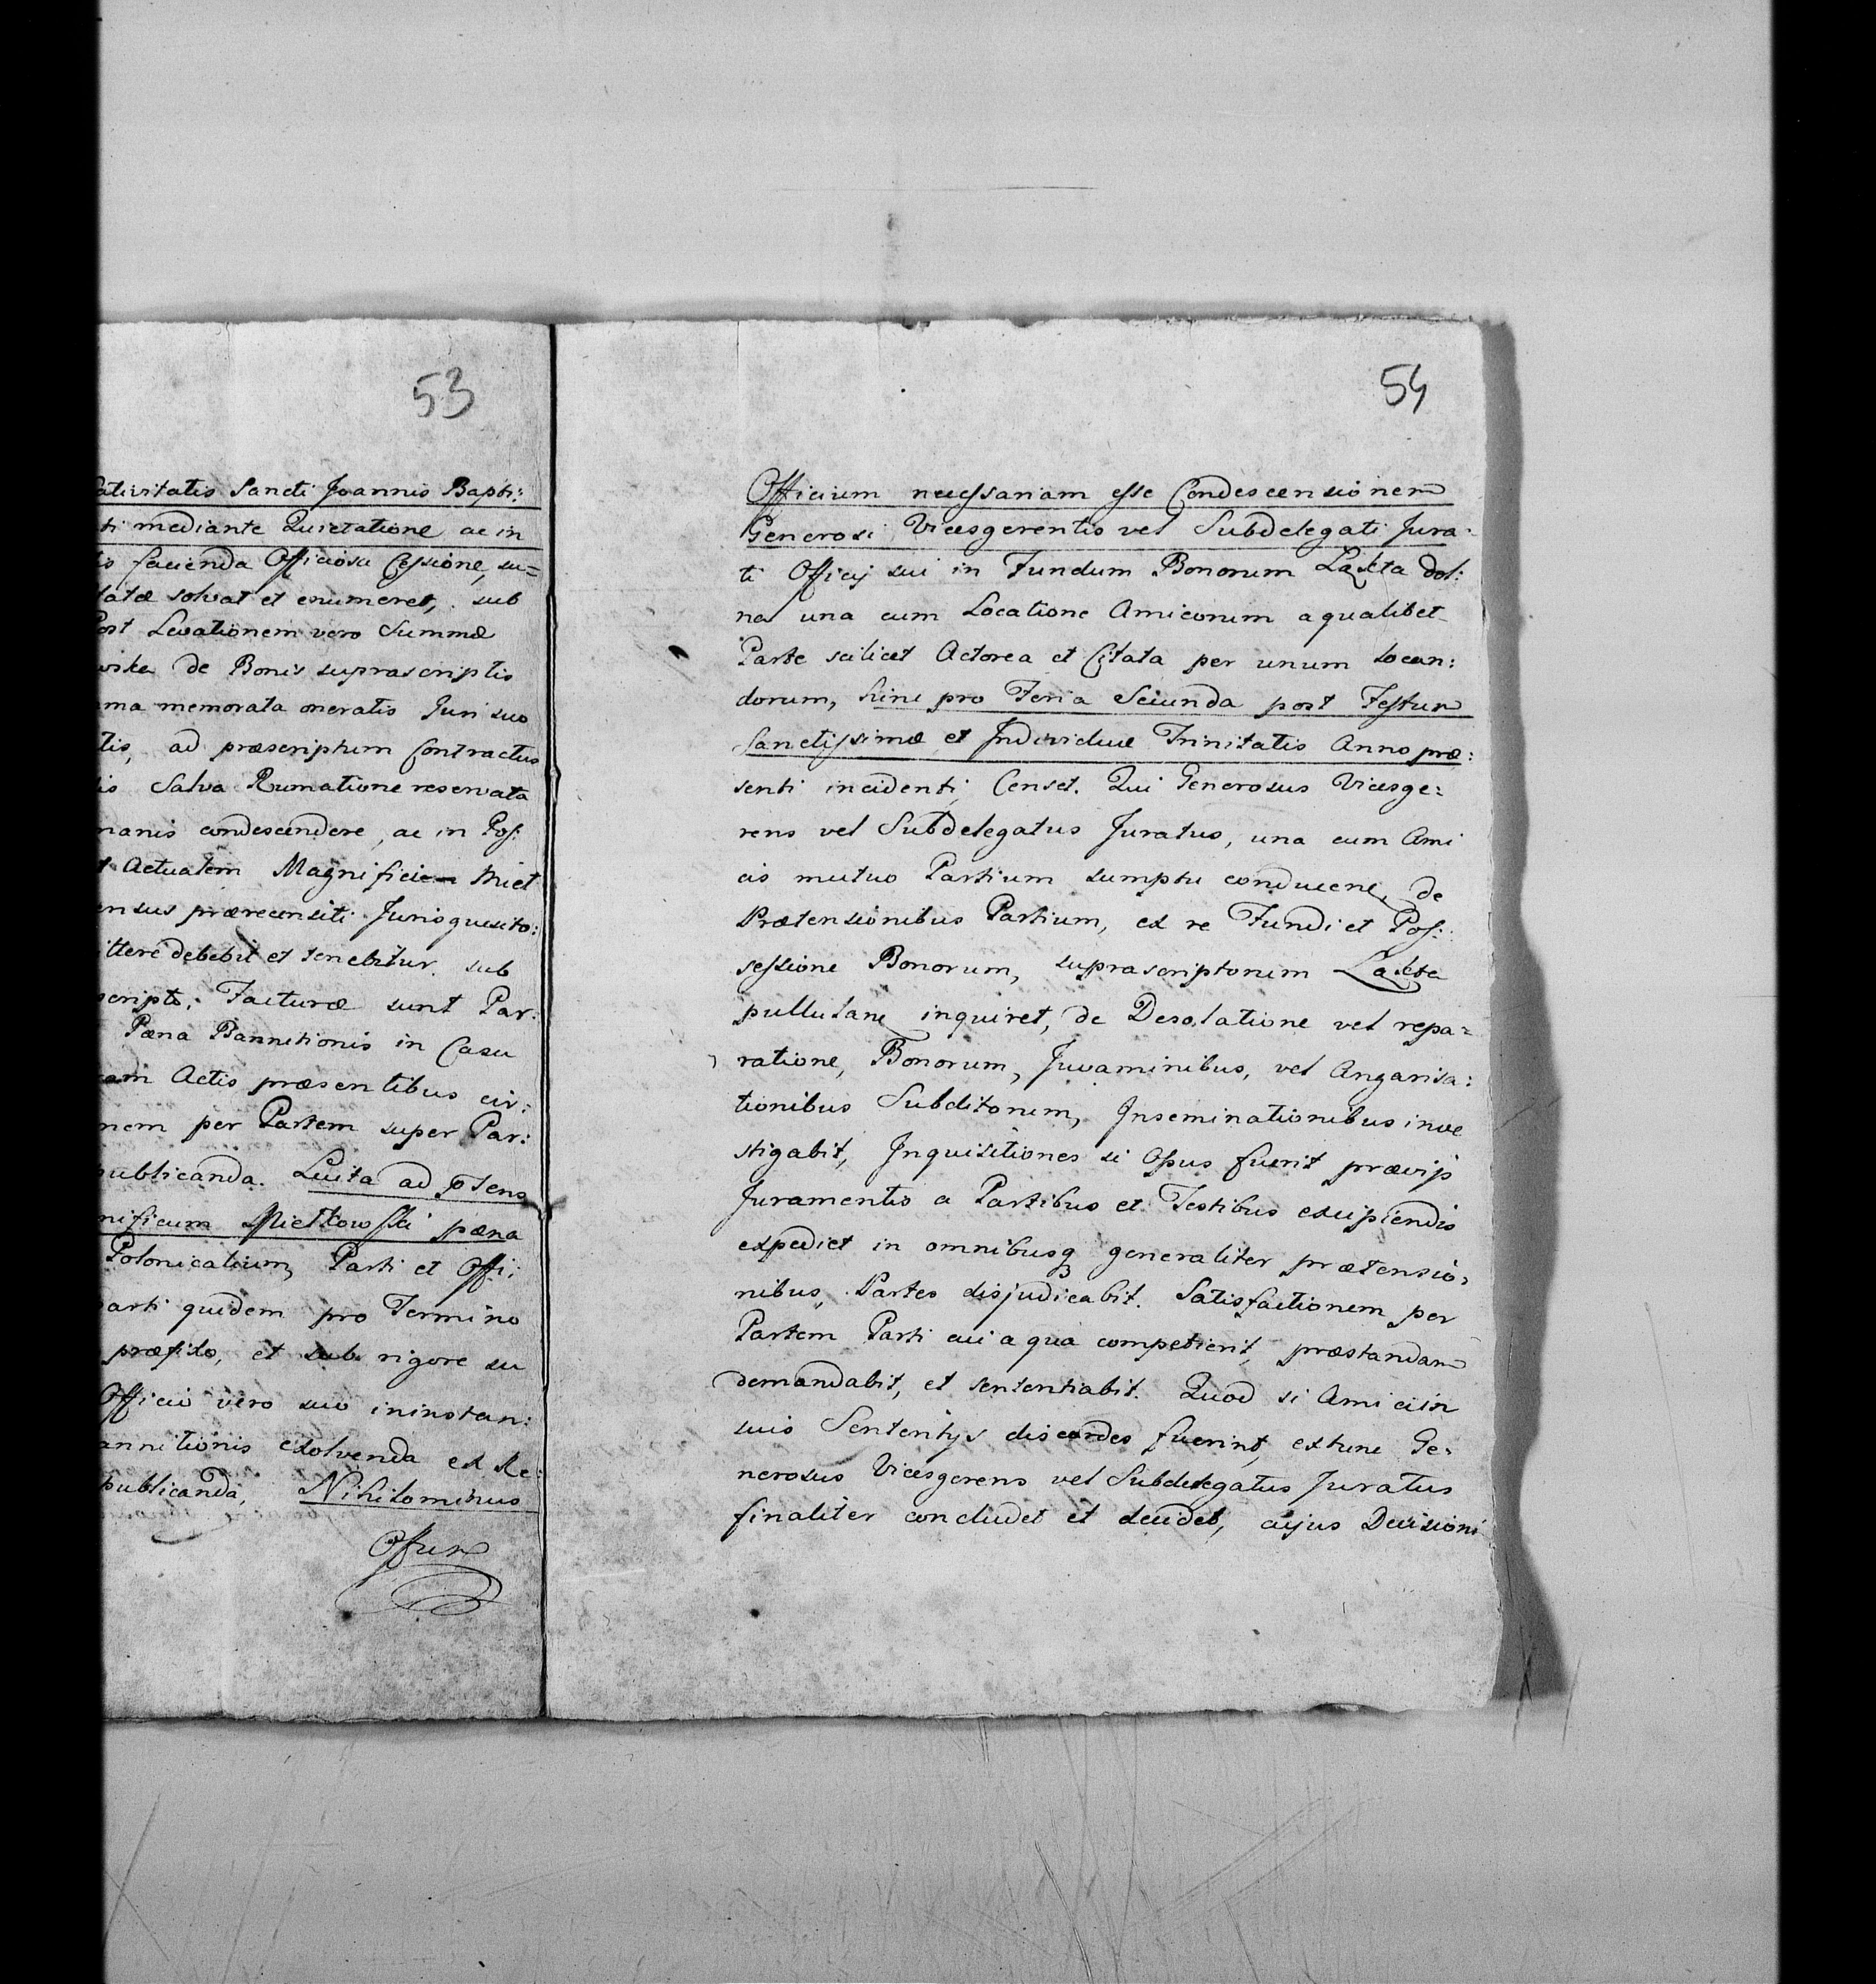 53
ativitatis Sancti Joannis Bapti:
ti mediante Quietatione ac in
tis facienda Officiosa Cessione, su=
latæ solvat et enumeret, sub
Post Levationem vero Summæ
de Bonis suprascriptis
ma memorata oneratis Juri suo
tis, ad præscriptum Contractus
is Salva Rumatione reservata
manis condescendere, ac in Pos:
t Actualem Magnificie Miet
ensus prærecensiti Juris quæsito:
ittere debebit et tenebitur sub
scripto; Facturæ sunt Par:
Pæna Bannitionis in Casu
am Actis præsentibus cir:
nem per Partem super Par:
publicanda. Luita ad
nificum Mietkowski pæna
Polonicalium, Parti et Offi:
arti quidem pro Termino
præfixo, et sub rigore su
Officio vero suo ininstan:
annitionis exolvenda ex Re:
publicanda, Nihilominus
Offum
54
Officium necessariam esse Condescensionem
Generosi Vicesgerentis vel Subdelegati Jura:
ti Officij sui in Fundum Bonorum Łąkta dol:
na una cum Locatione Amicorum a qualibet
Parte scilicet Actorea et Citata per unum locan:
dorum, hinc pro Feria Secunda post Festum
Sanctissimæ et Individuæ Trinitatis Anno præ:
senti incidenti, Censet. Qui Generosus Vicesge:
rens vel Subdelegatus Juratus, una cum Ami
cis mutuo Partium sumptu conducene, de
Prætensionibus Partium, ex re Fundi et Pos:
sessione Bonorum, suprascriptorum Łąkta
pullulane inquiret, de Desolatione vel repa=
ratione, Bonorum, Juvaminibus, vel Angarisa:
tionibus Subditorum, Inseminationibus inve
stigabit, Inquisitiones si Opus fuerit prævijs
Juramentis a Partibus et Testibus excipiendis
expediet in omnibusq generaliter prætensio:
nibus, Partes disjudicabit. Satisfactionem per
Partem Parti cui a qua competierit, præstandam
demandabit, et sententiabit. Quod si Amici in
suis Sententijs discordes fuerint, extunc Ge:
nerosus Vicesgerens vel Subdelegatus Juratus
finaliter concludet et decidet, cujus Decisioni